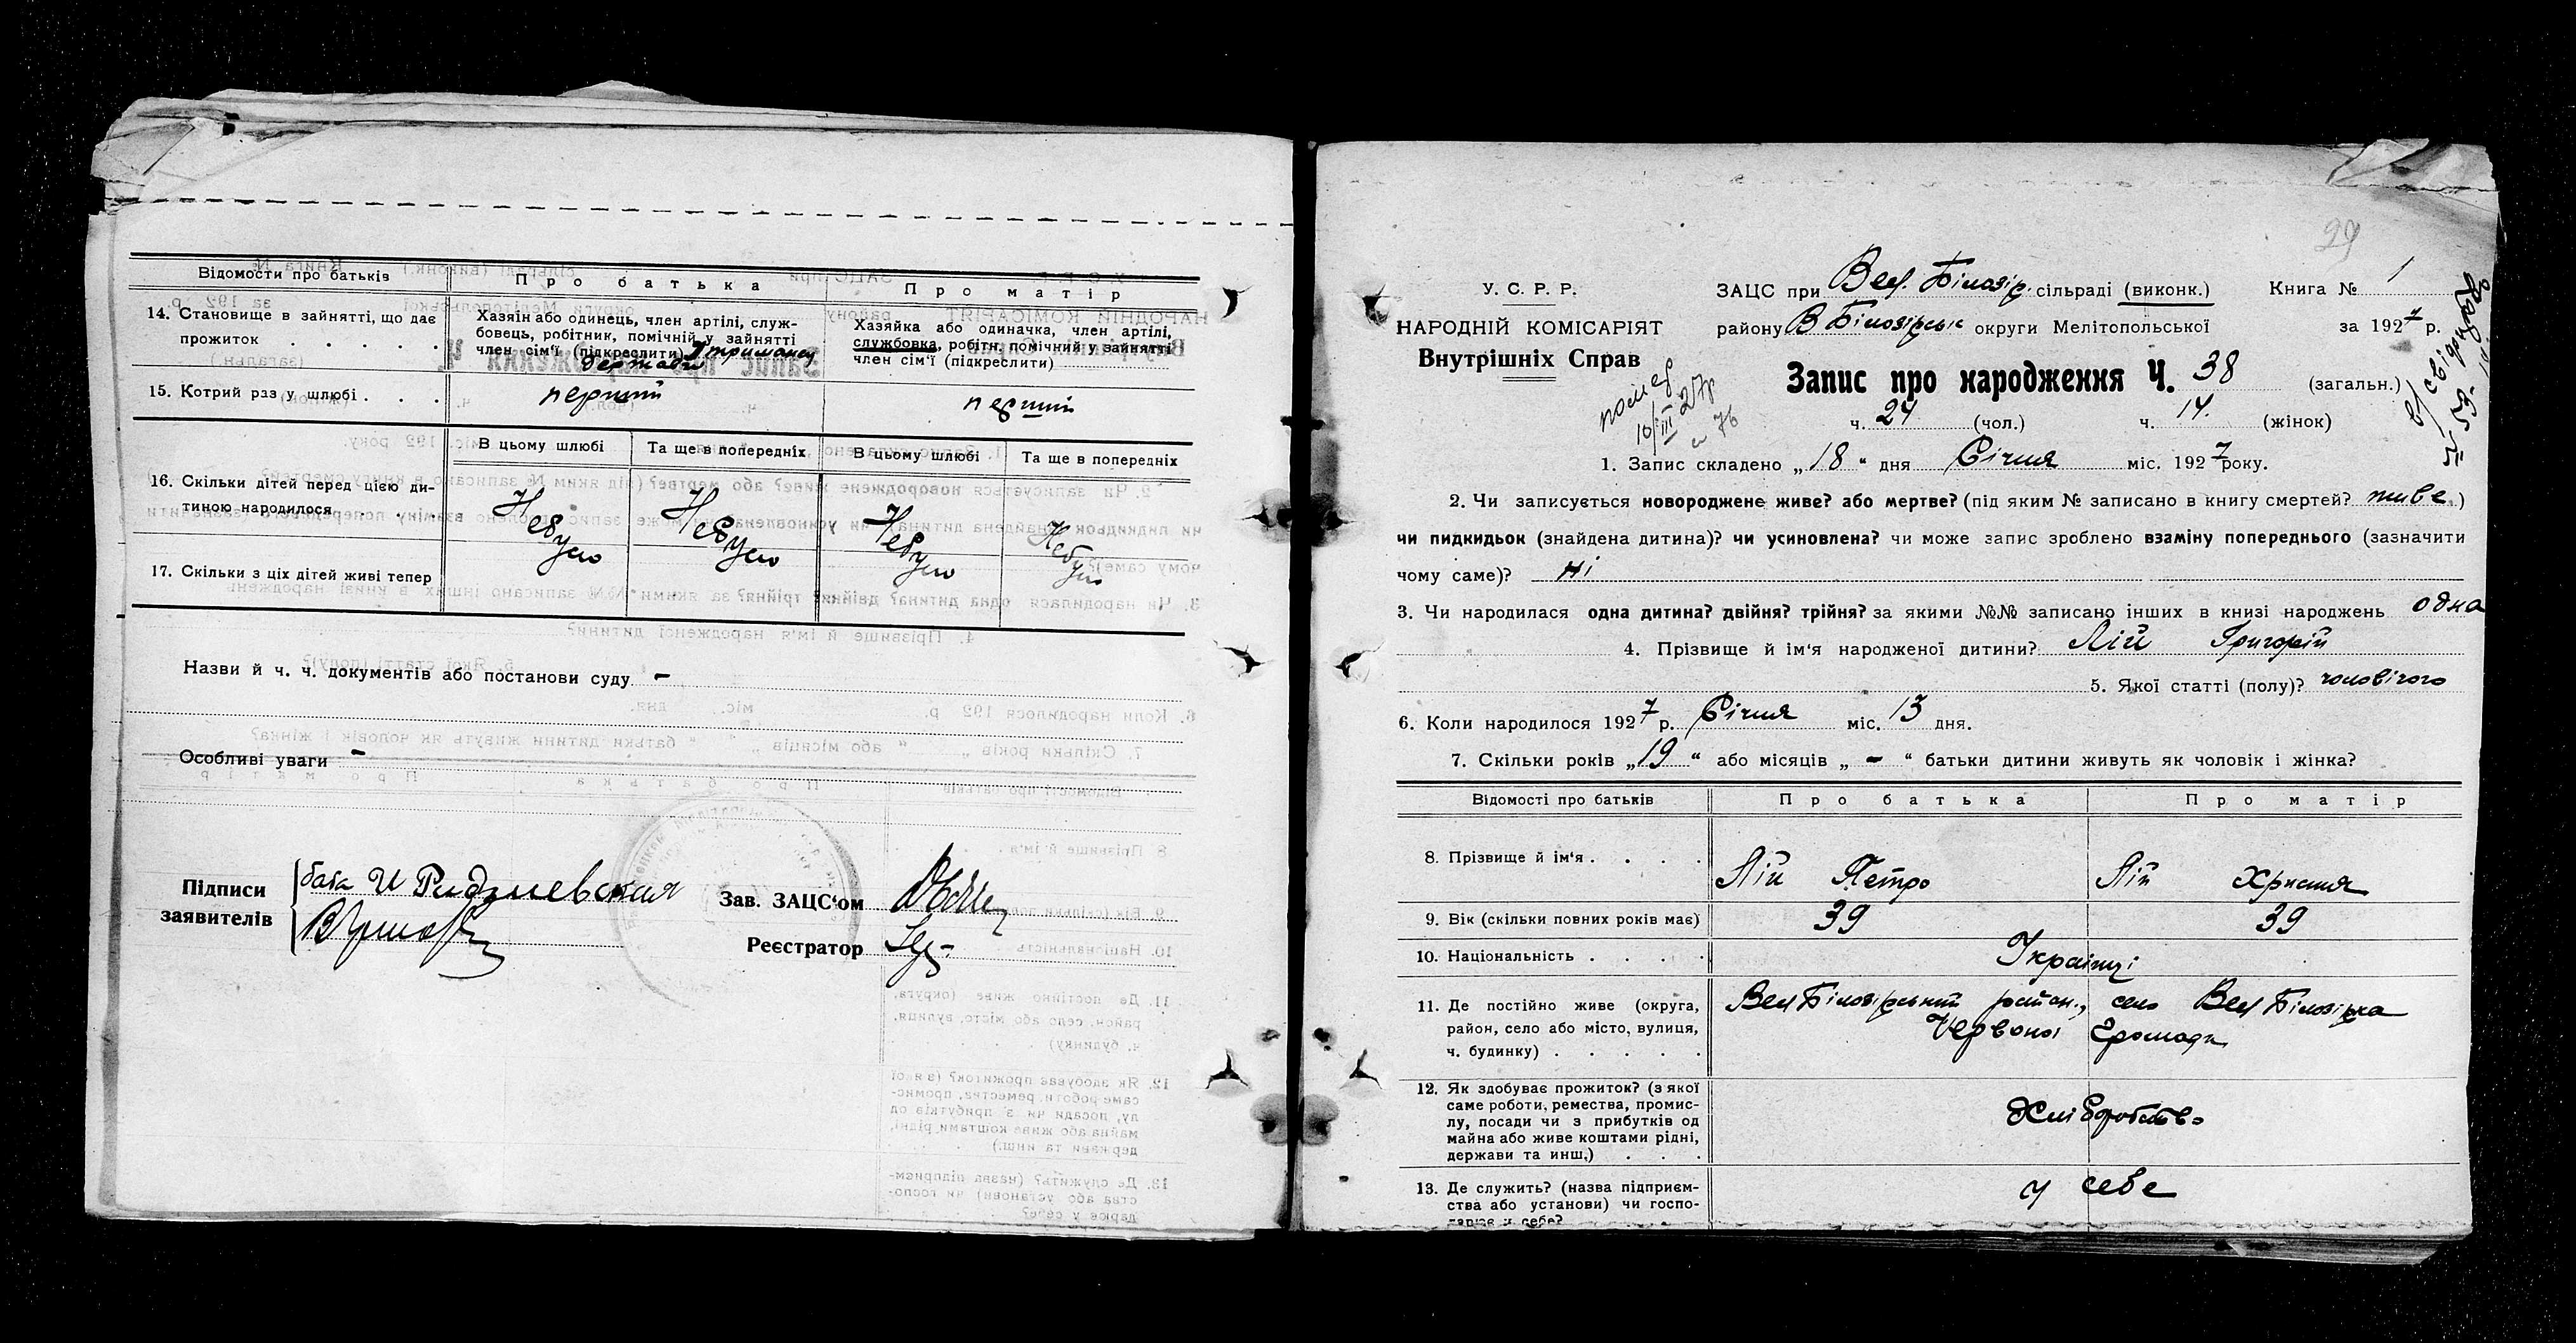 Відомости про батьків
Про батька
Про матір
14. Становище в зайнятті, що дає прожиток . . . . .
Хазяїн або одинець, член артілі, служ-
бовець, робітник, помічній у зайнятті
член сім'ї (підкреслити) Утриманец
держави
Хазяйка або одиначка, член артілі,
службовка, робітн. помічний у зайнятті
член сім'ї (підкреслити)
15. Котрий раз у шлюбі . . . .
перший
перший
В цьому шлюбі
Та ще в попередніх
В цьому шлюбі
Та ще в попередніх
16. Скільки дітей перед цією ди-
тиною народилося . . . . .
Небуло
Небуло
Небуло
Небуло
17. Скільки з ціх дітей живі тепер
Назви й ч. ч. документів або постанови суду -
Особливі уваги -
Підписи
заявителів
Зав. ЗАЦС'ом
Реєстратор
29
У. С. Р. Р.
НАРОДНІЙ КОМІСАРІЯТ
Внутрішніх Справ
ЗАЦС при Вел. Білозір. сільраді (виконк.)
Книга № 1
району В Білозірськ округи Мелітопольської
за 1927 р.
Запис про народження Ч. 38 (загальн.)
ч. 24 (чол.) ч. 14. (жінок)
помер
10/III 27р
№ 76
1. Запис складено „18“ дня Січня міс. 1927 року.
2. Чи записується новороджене живе? або мертве? (під яким № записано в книгу смертей? живе)
чи пидкидьок (знайдена дитина)? чи усиновлена? чи може запис зроблено взаміну попереднього (зазначити
чому саме)? ні
3. Чи народилася одна дитина? двійня? трійня? за якими №№ записано інших в книзі народжень одна
4. Прізвище й ім'я народженої дитини? Лій Григорій
5. Якої статті (полу)? чоловічого
6. Коли народилося 1927 р. Січня міс. 13 дня.
7. Скільки років „19“ або місяців „-“ батьки дитини живуть як чоловік і жінка?
Відомості про батьків
Про батька
Про матір
8. Прізвище й ім'я . . . .
Лій Петро
Лій Христя
9. Вік (скільки повних років має)
39
39
10. Національність . . . .
Українці
11. Де постійно живе (округа,
район, село або місто, вулиця,
ч. будинку) . . . . .
Вел Білозірський район, село Вел Білозірка
Червоної Громади
12. Як здобуває прожиток? (з якої
саме роботи, ремества, промис-
лу, посади чи з прибутків од
майна або живе коштами рідні,
держави та инш.) . . .
Хліборобство
13. Де служить? (назва підприєм-
ства або установи) чи госпо-
дарює у себе?
у себе